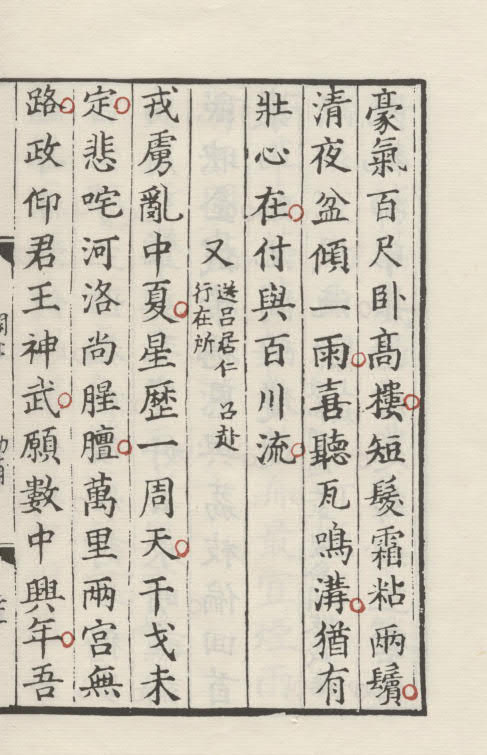 豪氣百尺卧髙樓短髮霜粘兩鬢
清夜盆傾一雨喜聽瓦鳴溝猶有
壯心在付與百川流
又
送呂居仁召赴
行在所
戎虜亂中夏星歷一周天干戈未
定悲咤河洛尚腥膻萬里兩宮無
路政仰君王神武願數中興年吾